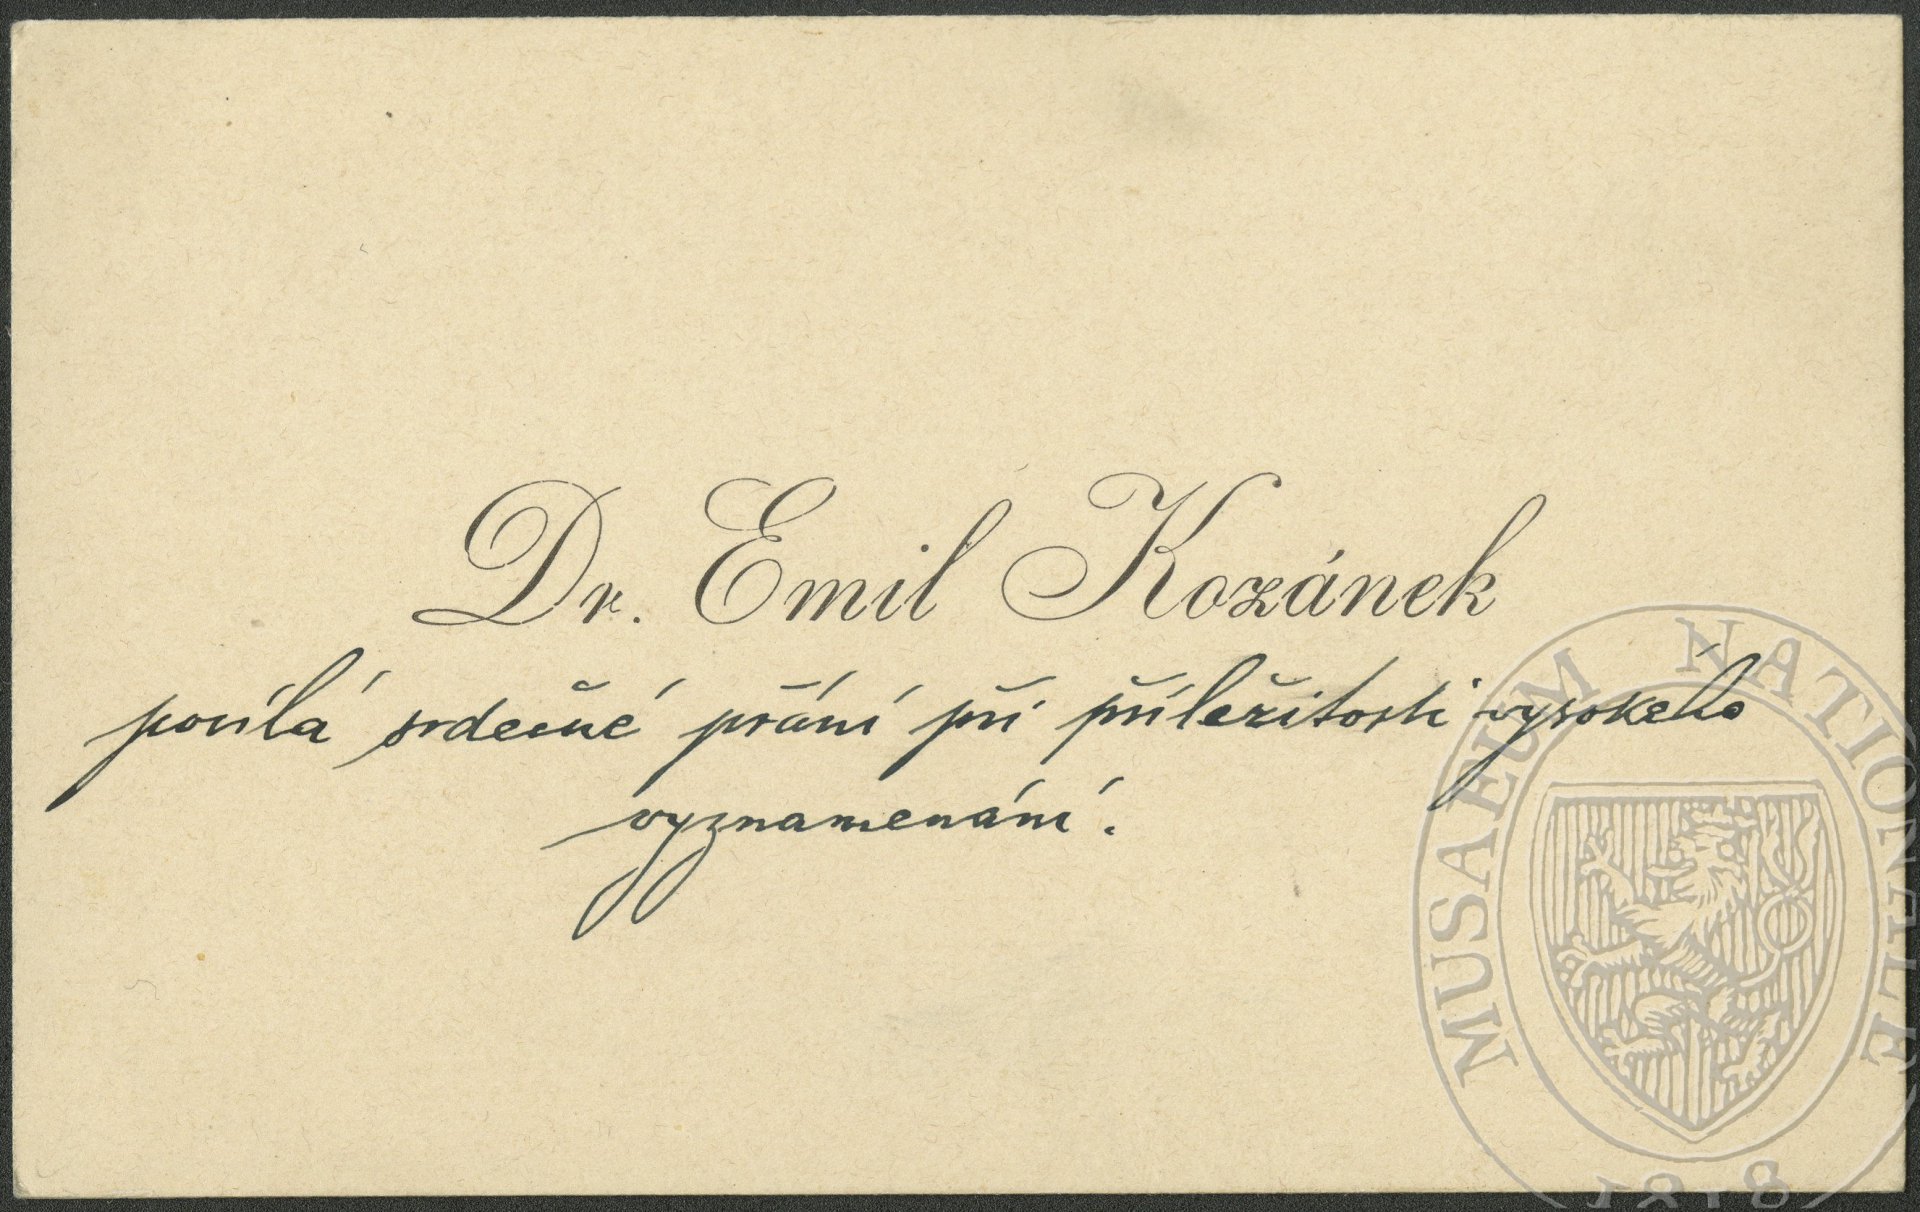 Dr. Emil Kozánek
posílá srdečné přání při příležitosti vysokého
vyznamenání.
MUSAEUM NATIONALE
1818